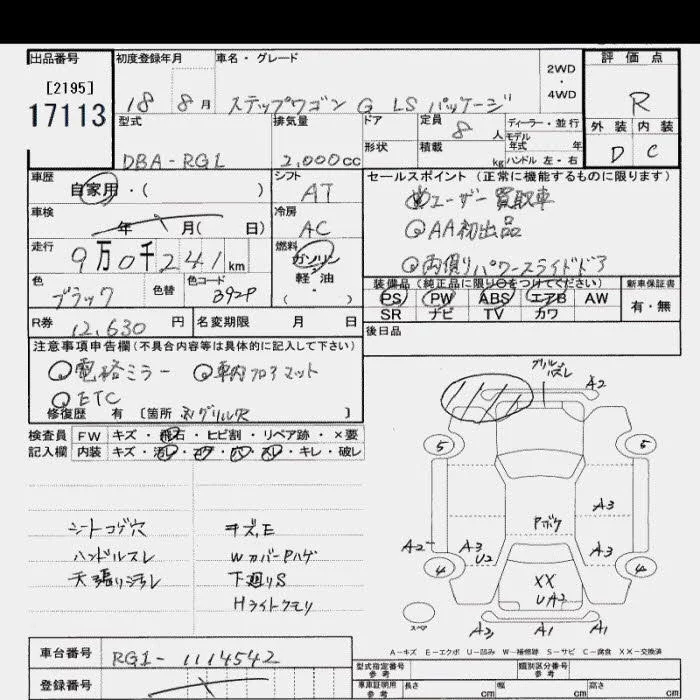 出品番号
[2195]
17113
初度登録年月
18 8 月
車名・グレード
ステップワゴン G LS パッケージ
2WD
・
4WD
評価点
R
外装 内装
D C
型式
DBA-RG1
排気量
2,000cc
ドア
形状
定員
8 人
積載
kg
ディーラー・並行
モデル
年式 年
ハンドル 左・右
車歴
自家用・( )
シフト
AT
セールスポイント(正常に機能するものに限ります)
ユーザー買取車
AA初出品
両側パワースライドドア
車検
年 月( 日)
冷房
AC
走行
9万0千241km
燃料
ガソリン
軽油
( ・ )
色
ブラック
色替
色コード
B92P
装備品(純正品に限り○をつけてください)
PS PW ABS エアB AW
SR ナビ TV カワ
新車保証書
有・無
R券
12,630 円
名変期限 月 日
後日品
注意事項申告欄(不具合内容等は具体的に記入して下さい)
電格ミラー 車内フロアマット
ETC
修復歴 有 [箇所 ]
検査員
記入欄
FW キズ・飛石・ヒビ割・リペア跡・×要
内装 キズ・汚レ・コゲ・穴・スレ・キレ・破レ
シートコゲ穴
ハンドルスレ
天張り汚レ
キズ,E
Wカバー Pハゲ
下廻りS
Hライトクモリ
グリルズレ
A2
5 5
Pボケ
A3
A2
A3
U2
A3
4 4
XX
UA2
スペア
A2 A1 A1
A-キズ E-エクボ U-凹み W-補修跡 S-サビ C-腐食 XX-交換済
車台番号
RG1-1114542
登録番号
型式指定番号
参考
類別区分番号
参考
車庫証明用
参考
長さ cm
幅 cm
高さ cm